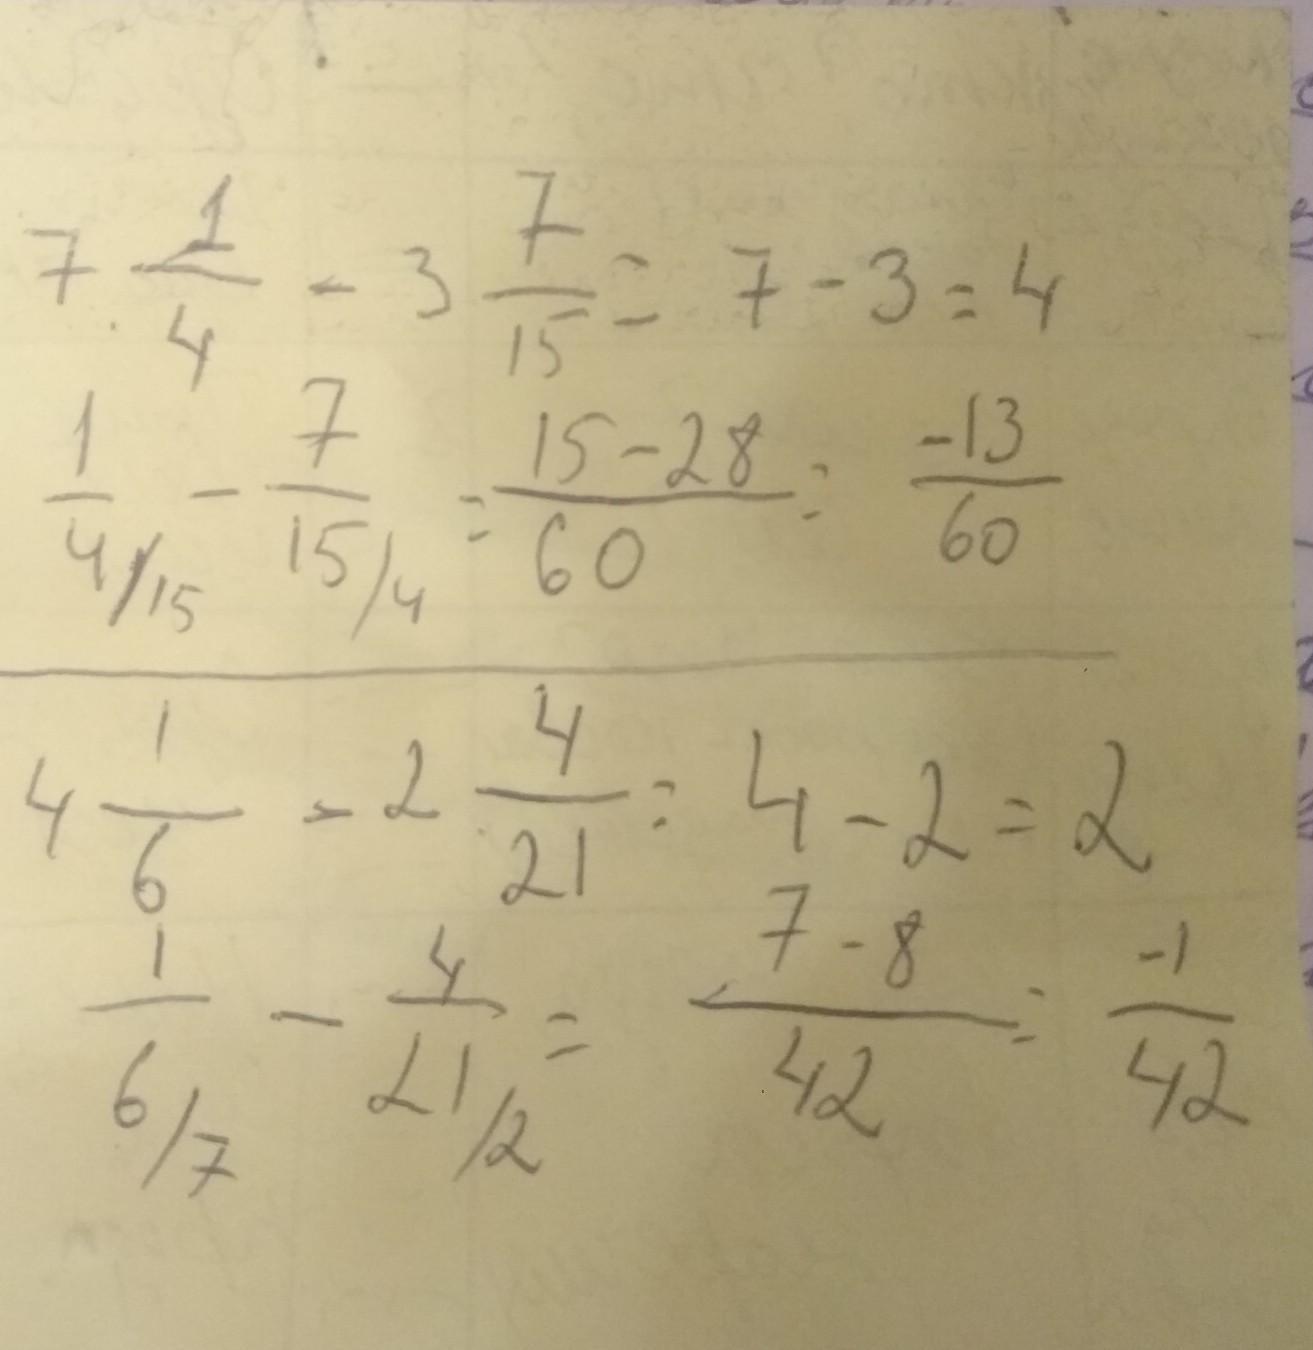 7 1/4 - 3 7/15 = 7 - 3 = 4
1/4 /15 - 7/15 /4 = 15-28/60 = -13/60
4 1/6 - 2 4/21 = 4 - 2 = 2
1/6 /7 - 4/21 /2 = 7-8/42 = -1/42